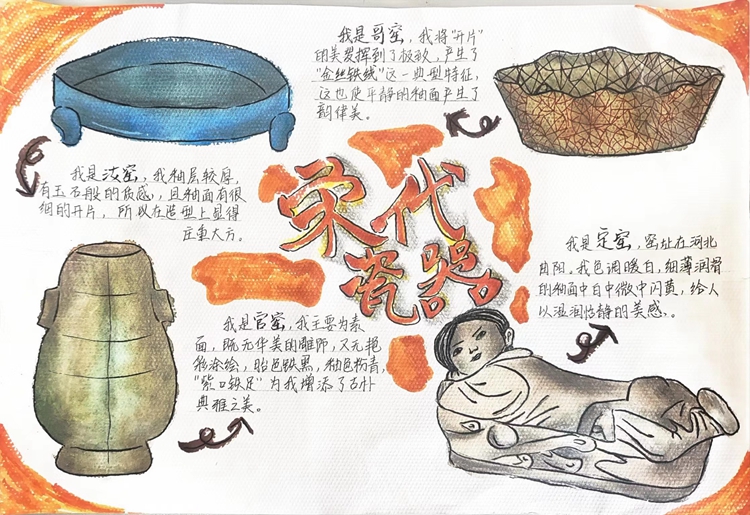 我是哥窑,我将“开片”
的美发挥到了极致,产生了
“金丝铁线”这一典型特征,
这也使平静的釉面产生了
韵律美。
我是汝窑,我釉层较厚,
有玉石般的质感,且釉面有很
细的开片,所以在造型上显得
庄重大方。
宋代
瓷器
我是定窑,窑址在河北
曲阳。我色调暖白,细薄润滑
的釉面中白中微中闪黄,给人
以温润恬静的美感。
我是官窑,我主要为素
面,既无华美的雕饰,又无艳
彩涂绘,胎色铁黑,釉色粉青,
“紫口铁足”为我增添了古朴
典雅之美。